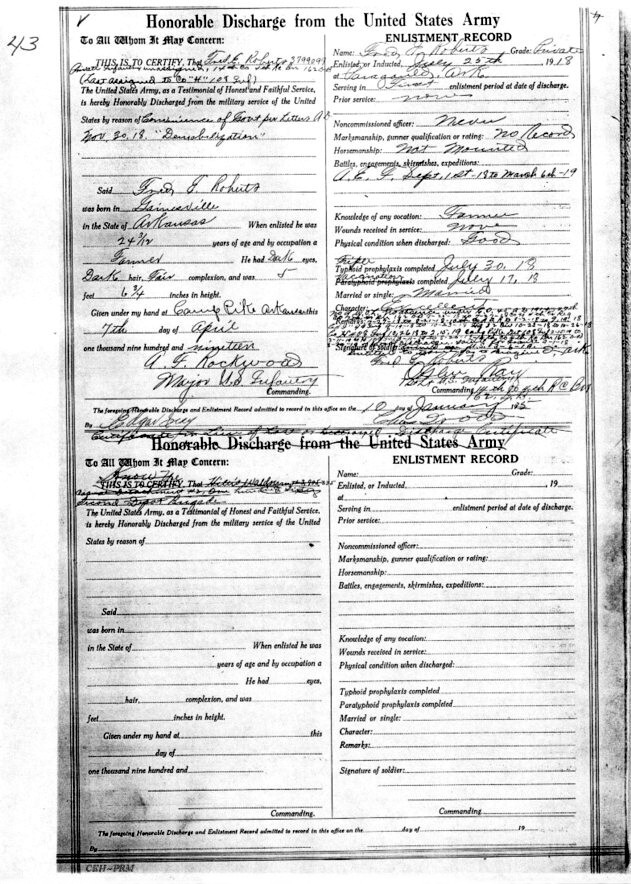 43
Honorable Discharge from the United States Army
To All Whom It May Concern:
THIS IS TO CERTIFY, That Fred G. Roberts 3799099
(Last assigned to Co "H"
The United States Army, as a Testimonial of Honest and Faithful Service,
is hereby Honorably Discharged from the military service of the United
States by reason of Convenience of Govt per Letters A G
Nov. 30, 18. "Demobilization"
Said Fred G. Roberts
was born in Gainesville
in the State of Arkansas When enlisted he was
24 3/12 years of age and by occupation a
Farmer He had Dark eyes,
Dark hair, Fair complexion, and was 5
feet 6 3/4 inches in height.
Given under my hand at Camp Pike Arkansas this
7th day of April
one thousand nine hundred and nineteen
A. F. Rockwood
Major U.S. Infantry
Commanding.
ENLISTMENT RECORD
Name: Fred G. Roberts Grade: Private
Enlisted, or Inducted, July 25th, 1918
at Paragould, Ark
Serving in First enlistment period at date of discharge.
Prior service: none
Noncommissioned officer: Never
Marksmanship, gunner qualification or rating: No Record
Horsemanship: Not Mounted
Battles, engagements, skirmishes, expeditions:
A.E.F. Sept. 1st-18 to March 6th-19
Knowledge of any vocation: Farmer
Wounds received in service: none
Physical condition when discharged: Good
Typhoid prophylaxis completed July 30, 18
Paratyphoid prophylaxis completed July 17, 18
Married or single: Married
Character:
Signature of soldier:
Commanding
The foregoing Honorable Discharge and Enlistment Record admitted to record in this office on the 10 day of January
By
Honorable Discharge from the United States Army
To All Whom It May Concern:
THIS IS TO CERTIFY, That
The United States Army, as a Testimonial of Honest and Faithful Service,
is hereby Honorably Discharged from the military service of the United
States by reason of
Said
was born in
in the State of When enlisted he was
years of age and by occupation a
He had eyes,
hair, complexion, and was
feet inches in height.
Given under my hand at this
day of
one thousand nine hundred and
Commanding.
ENLISTMENT RECORD
Name: Grade:
Enlisted, or Inducted, 19
at
Serving in enlistment period at date of discharge.
Prior service:
Noncommissioned officer:
Marksmanship, gunner qualification or rating:
Horsemanship:
Battles, engagements, skirmishes, expeditions:
Knowledge of any vocation:
Wounds received in service:
Physical condition when discharged:
Typhoid prophylaxis completed
Paratyphoid prophylaxis completed
Married or single:
Character:
Remarks:
Signature of soldier:
Commanding
The foregoing Honorable Discharge and Enlistment Record admitted to record in this office on the day of 19
By
CRH-PRM